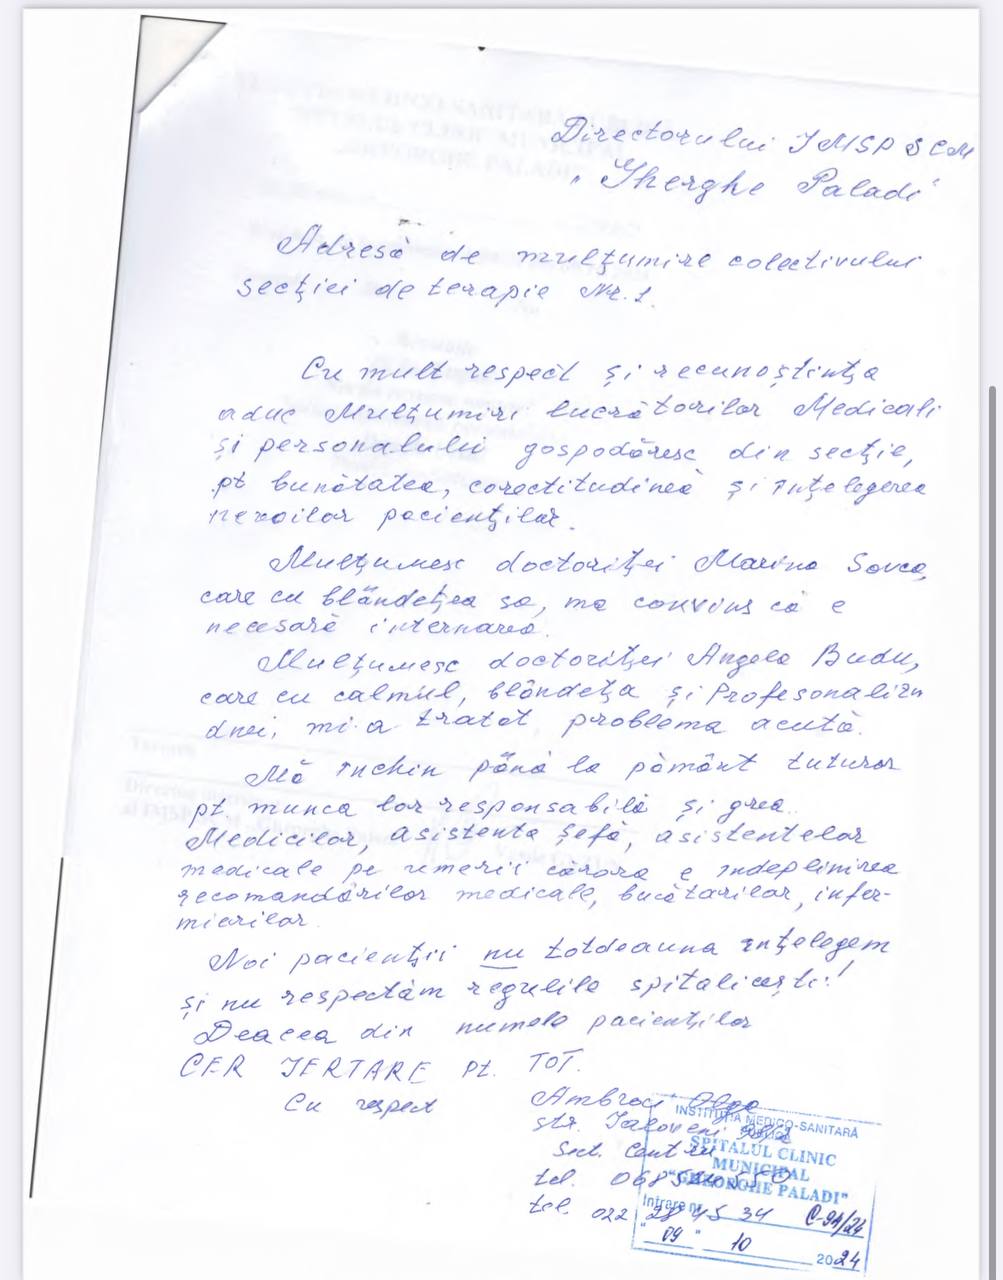 Directorului IMSP SCM
"Gherghe Paladi"
Adresă de mulțumire colectivului
secției de terapie Nr. 1.
Cu mult respect și recunoștința
aduc Mulțumiri lucrătorilor Medicali
și personalului gospodăresc din secție,
pt bunătatea, corectitudinea și înțelegerea
nevoilor pacienților.
Mulțumesc doctoriței Marina Sovca,
care cu blândețea sa, ma convins că e
necesară internarea.
Mulțumesc doctoriței Angela Budu,
care cu calmul, blândeța și Profesonalizm
dnei, mi-a tratat problema acută.
Mă închin până la pământ tuturor
pt munca lor responsabilă și grea.
Medicilor, asistenta șefă, asistentelor
medicale pe umerii cărora e îndeplinirea
recomandărilor medicale, bucătarilor, infer-
mierilor.
Noi pacienții nu totdeauna înțelegem
și nu respectăm regulile spitalicești!
Deacea din numele pacienților
CER IERTARE Pt. TOT.
Cu respect
Ambroci Olga
str. Ialoveni
Sect. Centru
tel.
tel. 022 28 45 34
INSTITUȚIA MEDICO-SANITARĂ
PUBLICĂ
SPITALUL CLINIC
MUNICIPAL
"GHEORGHE PALADI"
Intrare nr. C-94/24
"09" 10 2024